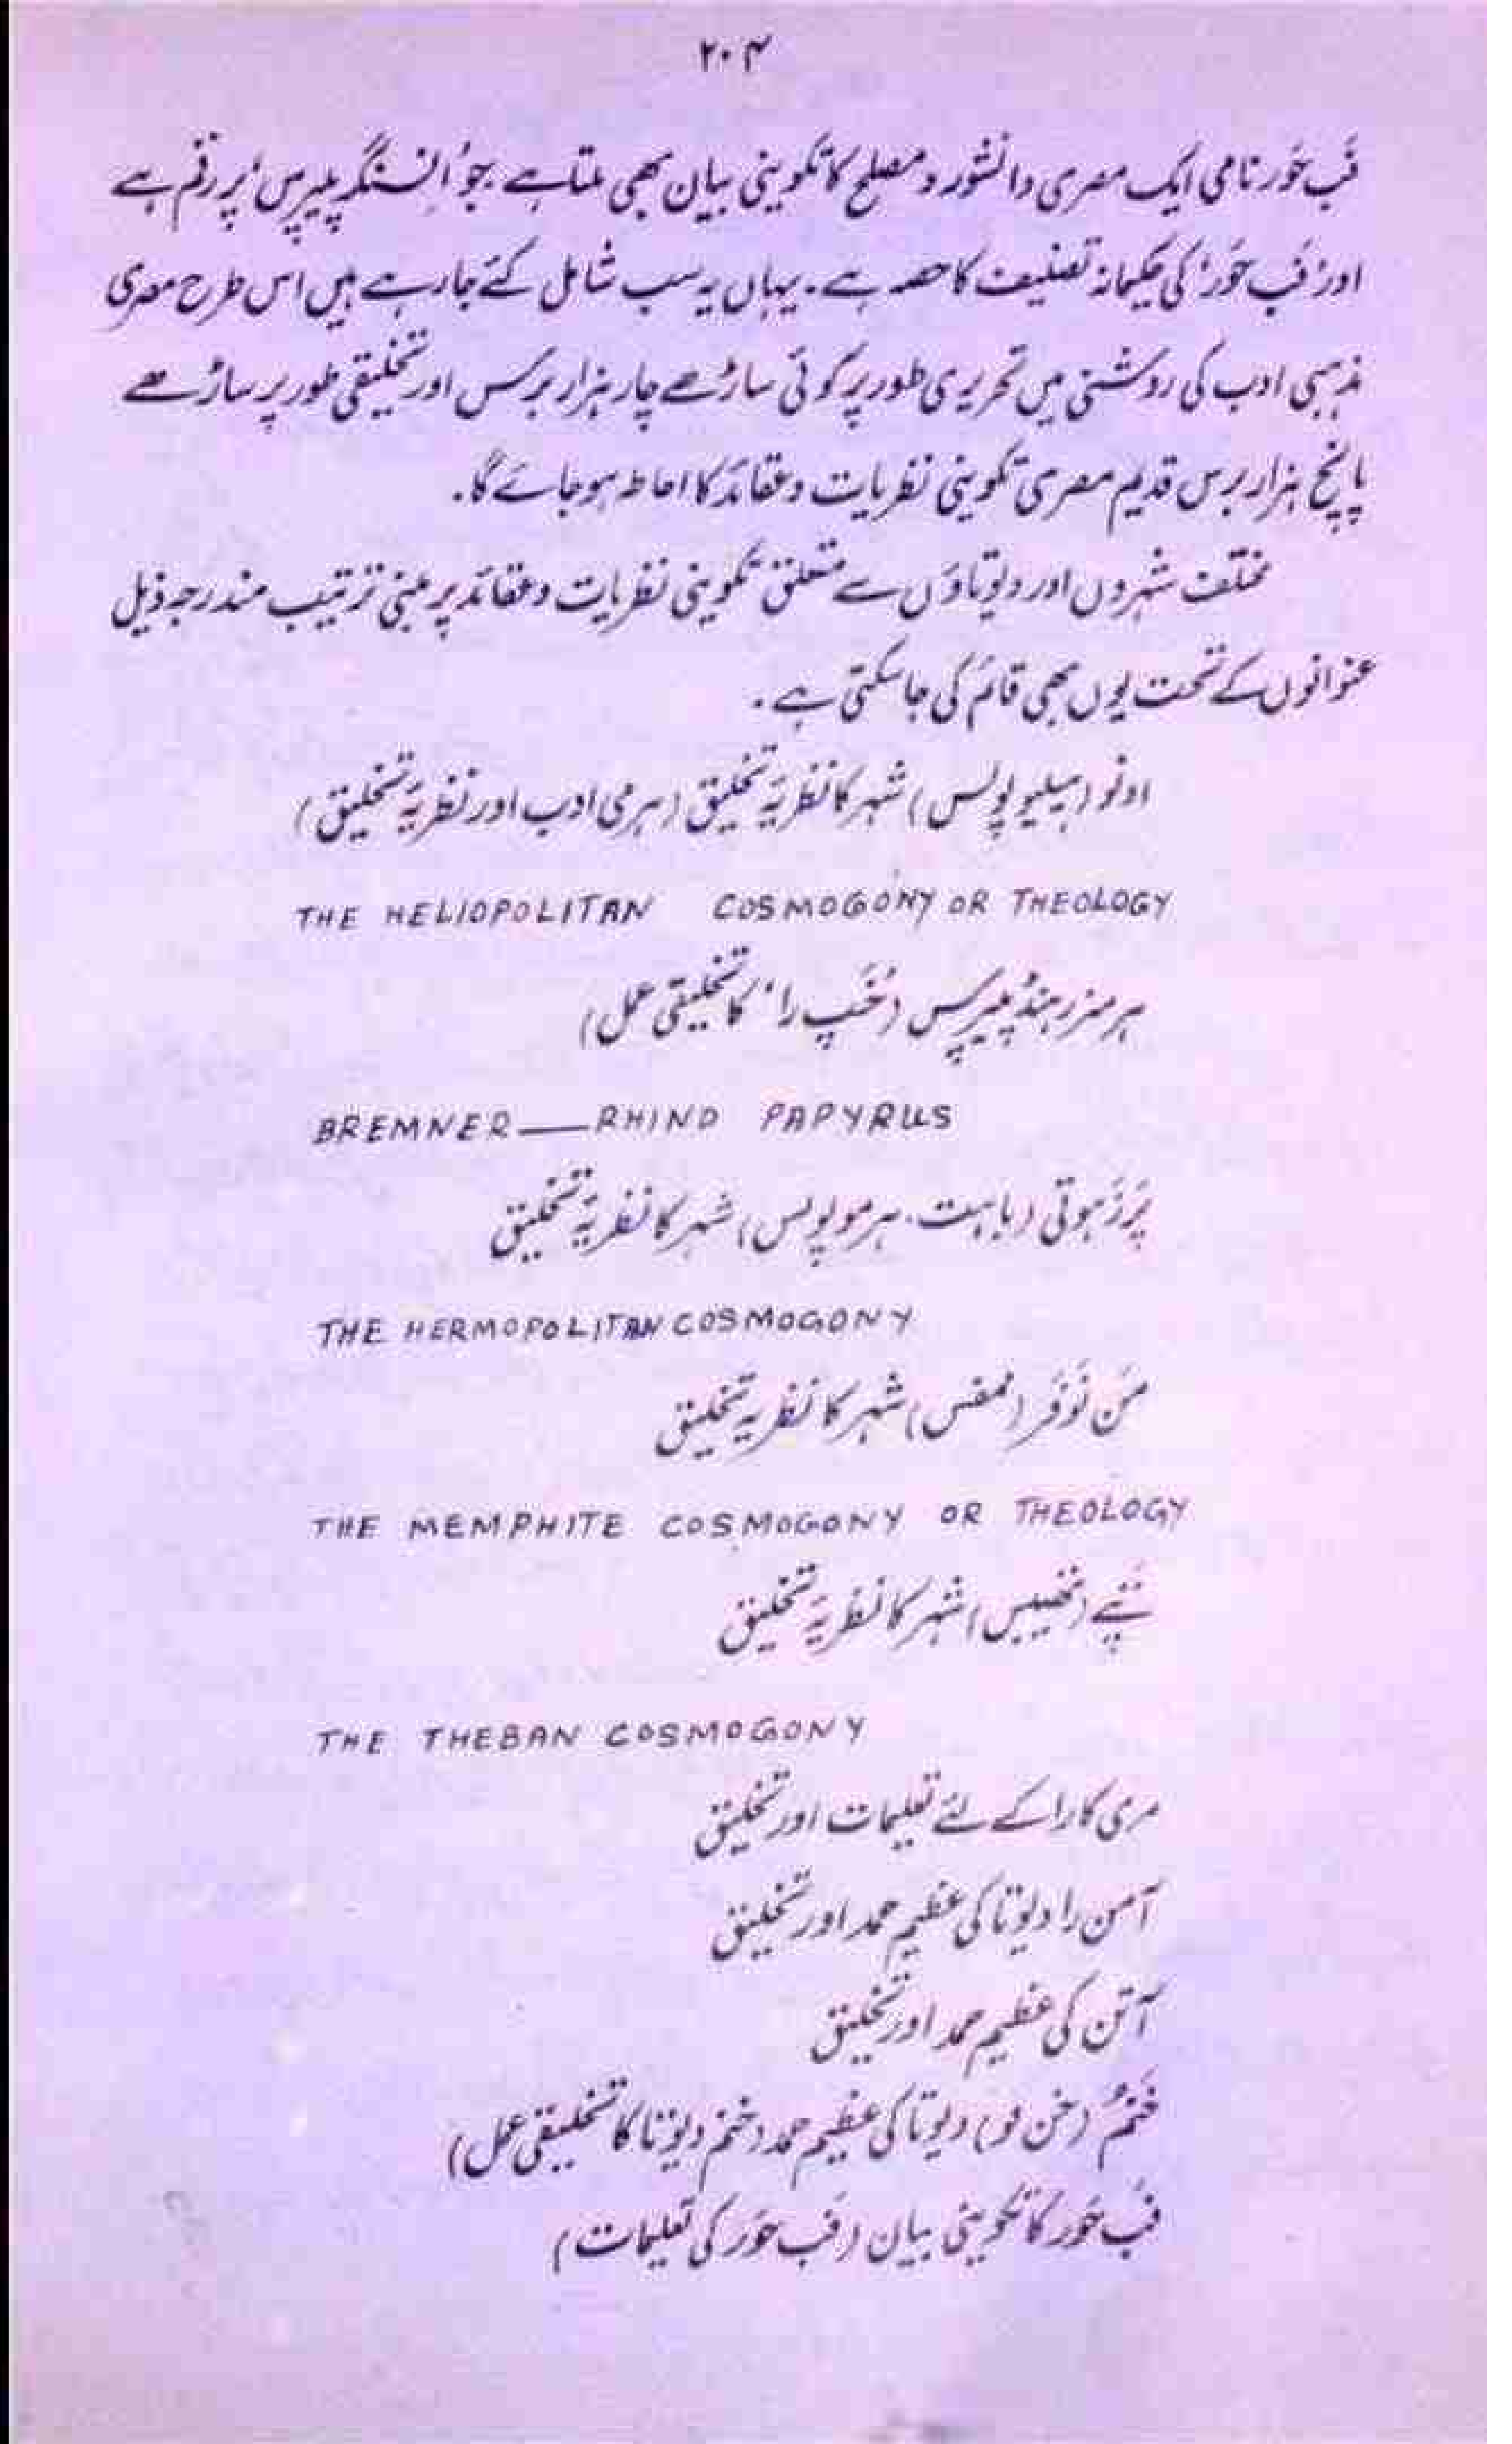 ۲۰۴
فَب حَور نامی ایک مصری دانشور و مصلح کا تکوینی بیان بھی ملتا ہے جو 'اِنسنگر پیپرس' پر رقم ہے
اور 'فَب حَور' کی حکیمانہ تصنیف کا حصہ ہے۔ یہاں یہ سب شامل کئے جا رہے ہیں اس طرح مصری
مذہبی ادب کی روشنی میں تحریری طور پر کوئی ساڑھے چار ہزار برس اور تخلیقی طور پر ساڑھے
پانچ ہزار برس قدیم مصری تکوینی نظریات و عقائد کا احاطہ ہو جائے گا۔
مختلف شہروں اور دیوتاؤں سے متعلق تکوینی نظریات و عقائد پر مبنی ترتیب مندرجہ ذیل
عنوانوں کے تحت یوں بھی قائم کی جا سکتی ہے۔
اونو (ہیلیوپولس) شہر کا نظریۂ تخلیق (ہرمی ادب اور نظریۂ تخلیق)
THE HELIOPOLITAN COSMOGONY OR THEOLOGY
ہرمنر رہنڈ پیپرس ('خَپ را' کا تخلیقی عمل)
BREMNER—RHIND PAPYRUS
پَرزَہوتی (باہت۔ ہرموپولس) شہر کا نظریۂ تخلیق
THE HERMOPOLITAN COSMOGONY
مَن نَوفَر (ممفس) شہر کا نظریہ تخلیق
THE MEMPHITE COSMOGONY OR THEOLOGY
(تھیبیس) شہر کا نظریۂ تخلیق
THE THEBAN COSMOGONY
مری کارا کے لئے تعلیمات اور تخلیق
آمن را دیوتا کی عظیم حمد اور تخلیق
آتن کی عظیم حمد اور تخلیق
خَنمُ (خن مو) دیوتا کی عظیم حمد (خنم دیوتا کا تخلیقی عمل)
فَب حَور کا تکوینی بیان (فَب حَور کی تعلیمات)